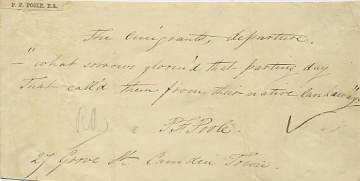 P. F. POOLE, R.A.
The emigrants, departure.
– "what sorrows gloom'd that parting day
That call'd them from their native land away"
RA
P.F. Poole.
27 Grove St Camden Town